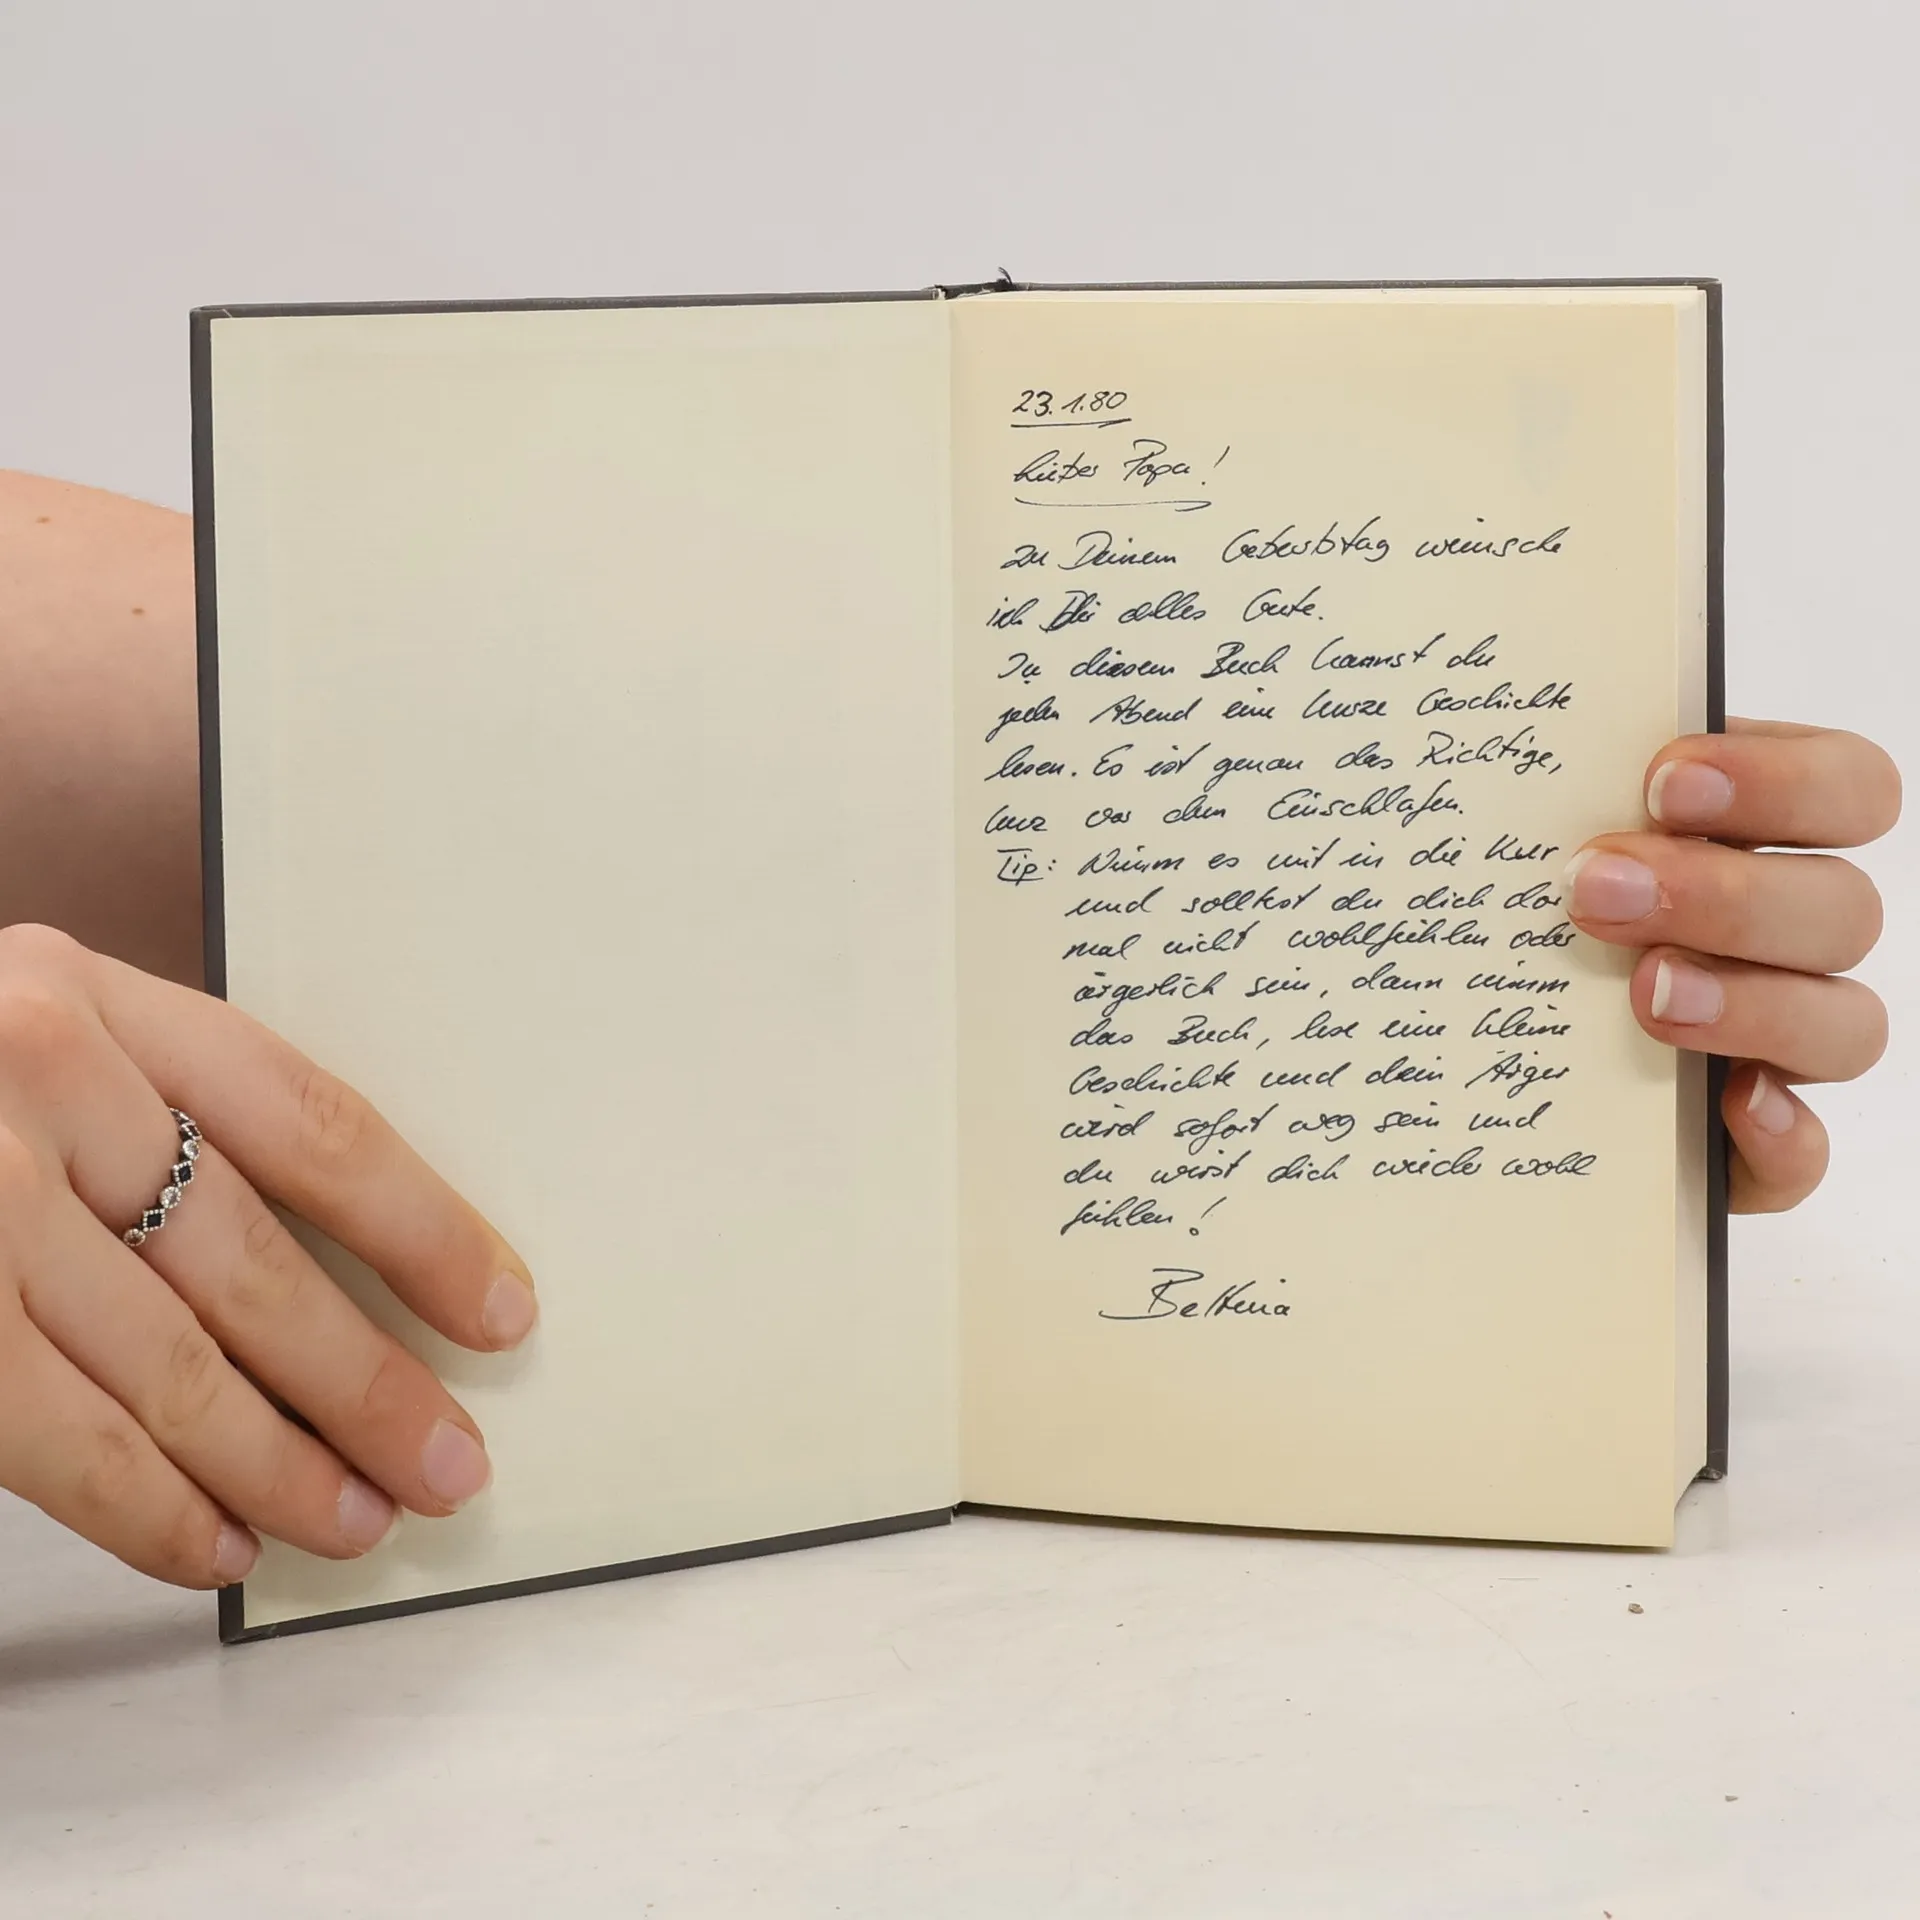 23.1.80
Lieber Papa!
zu Deinem Geburtstag wünsche
ich Dir alles Gute.
In diesem Buch kannst du
jeden Abend eine kurze Geschichte
lesen. Es ist genau das Richtige,
kurz vor dem Einschlafen.
Tip: Nimm es mit in die Kur
und solltest du dich da
mal nicht wohlfühlen oder
ärgerlich sein, dann nimm
das Buch, lese eine kleine
Geschichte und dein Ärger
wird sofort weg sein und
du wirst dich wieder wohl
fühlen!
Bettina